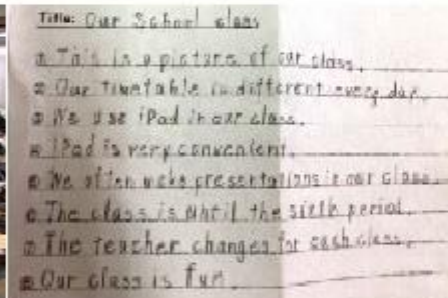 Title: Our School class
① This is a picture of our class.
② Our timetable is different every day.
③ We use iPad in our class.
④ iPad is very convenient.
⑤ We often make presentations in our class.
⑥ The class is until the sixth period.
⑦ The teacher changes for each class.
⑧ Our class is fun.